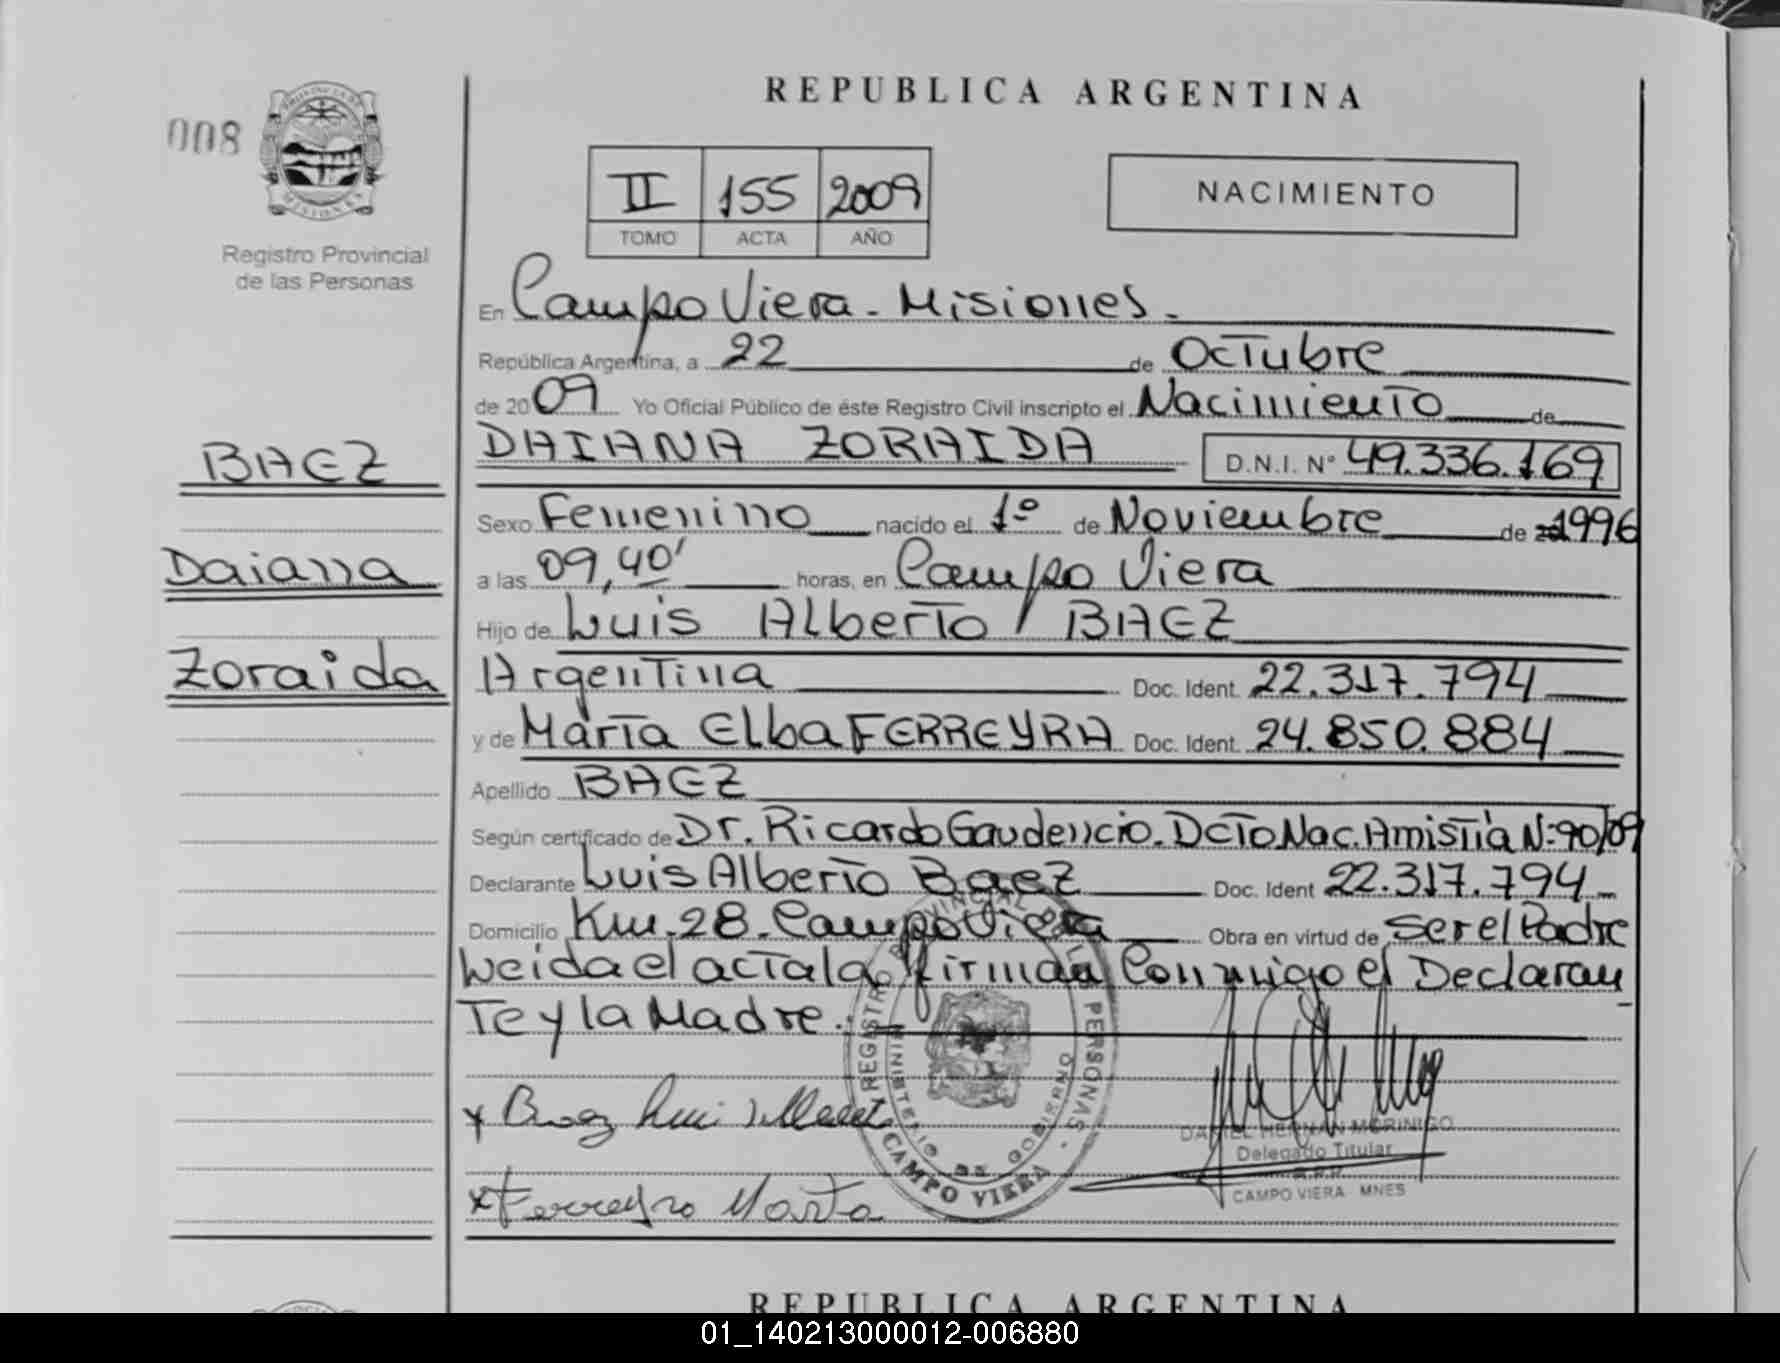 REPUBLICA ARGENTINA
008
PROVINCIA DE
MISIONES
II 155 2009
TOMO ACTA AÑO
NACIMIENTO
Registro Provincial
de las Personas
En Campo Viera - Misiones.
República Argentina, a 22 de Octubre
de 2009 Yo Oficial Público de éste Registro Civil inscripto el Nacimiento de
BAEZ
DAIANA ZORAIDA D.N.I. N° 49.336.169
Sexo Femenino nacido el 1º de Noviembre de 1996
Daiana
a las 09,40' horas, en Campo Viera
Hijo de Luis Alberto BAEZ
Zoraida
Argentina Doc. Ident. 22.317.794
y de Marta Elba FERREYRA Doc. Ident. 24.850.884
Apellido BAEZ
Según certificado de Dr. Ricardo Gaudencio. DctoNac.Amistia N:90/09
Declarante Luis Alberto Baez Doc. Ident 22.317.794
Domicilio Km. 28. Campo Viera Obra en virtud de ser el Padre
Leida el acta la firman Conmigo el Declaran
Te y la Madre.
REGISTRO PROVINCIAL DE LAS PERSONAS
MINISTERIO DE GOBIERNO
CAMPO VIERA
x Baez Luis
x Ferreyra Marta
DANIEL HERNAN MORINIGO
Delegado Titular
R.P.P.
CAMPO VIERA MNES
REPUBLICA ARGENTINA
01_140213000012-006880